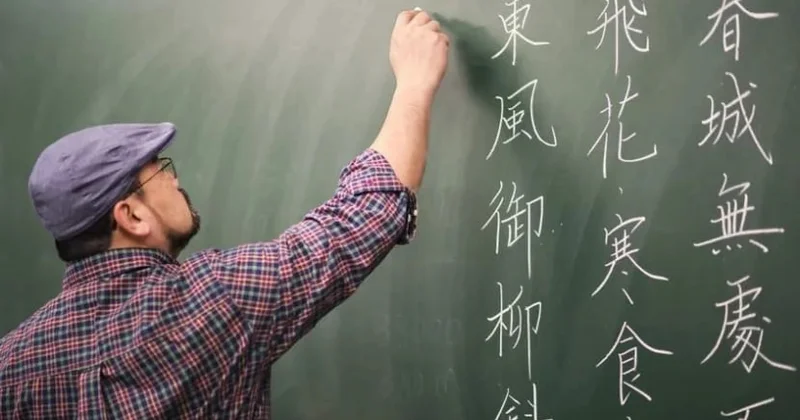 春城無處
飛花寒食
東風御柳斜